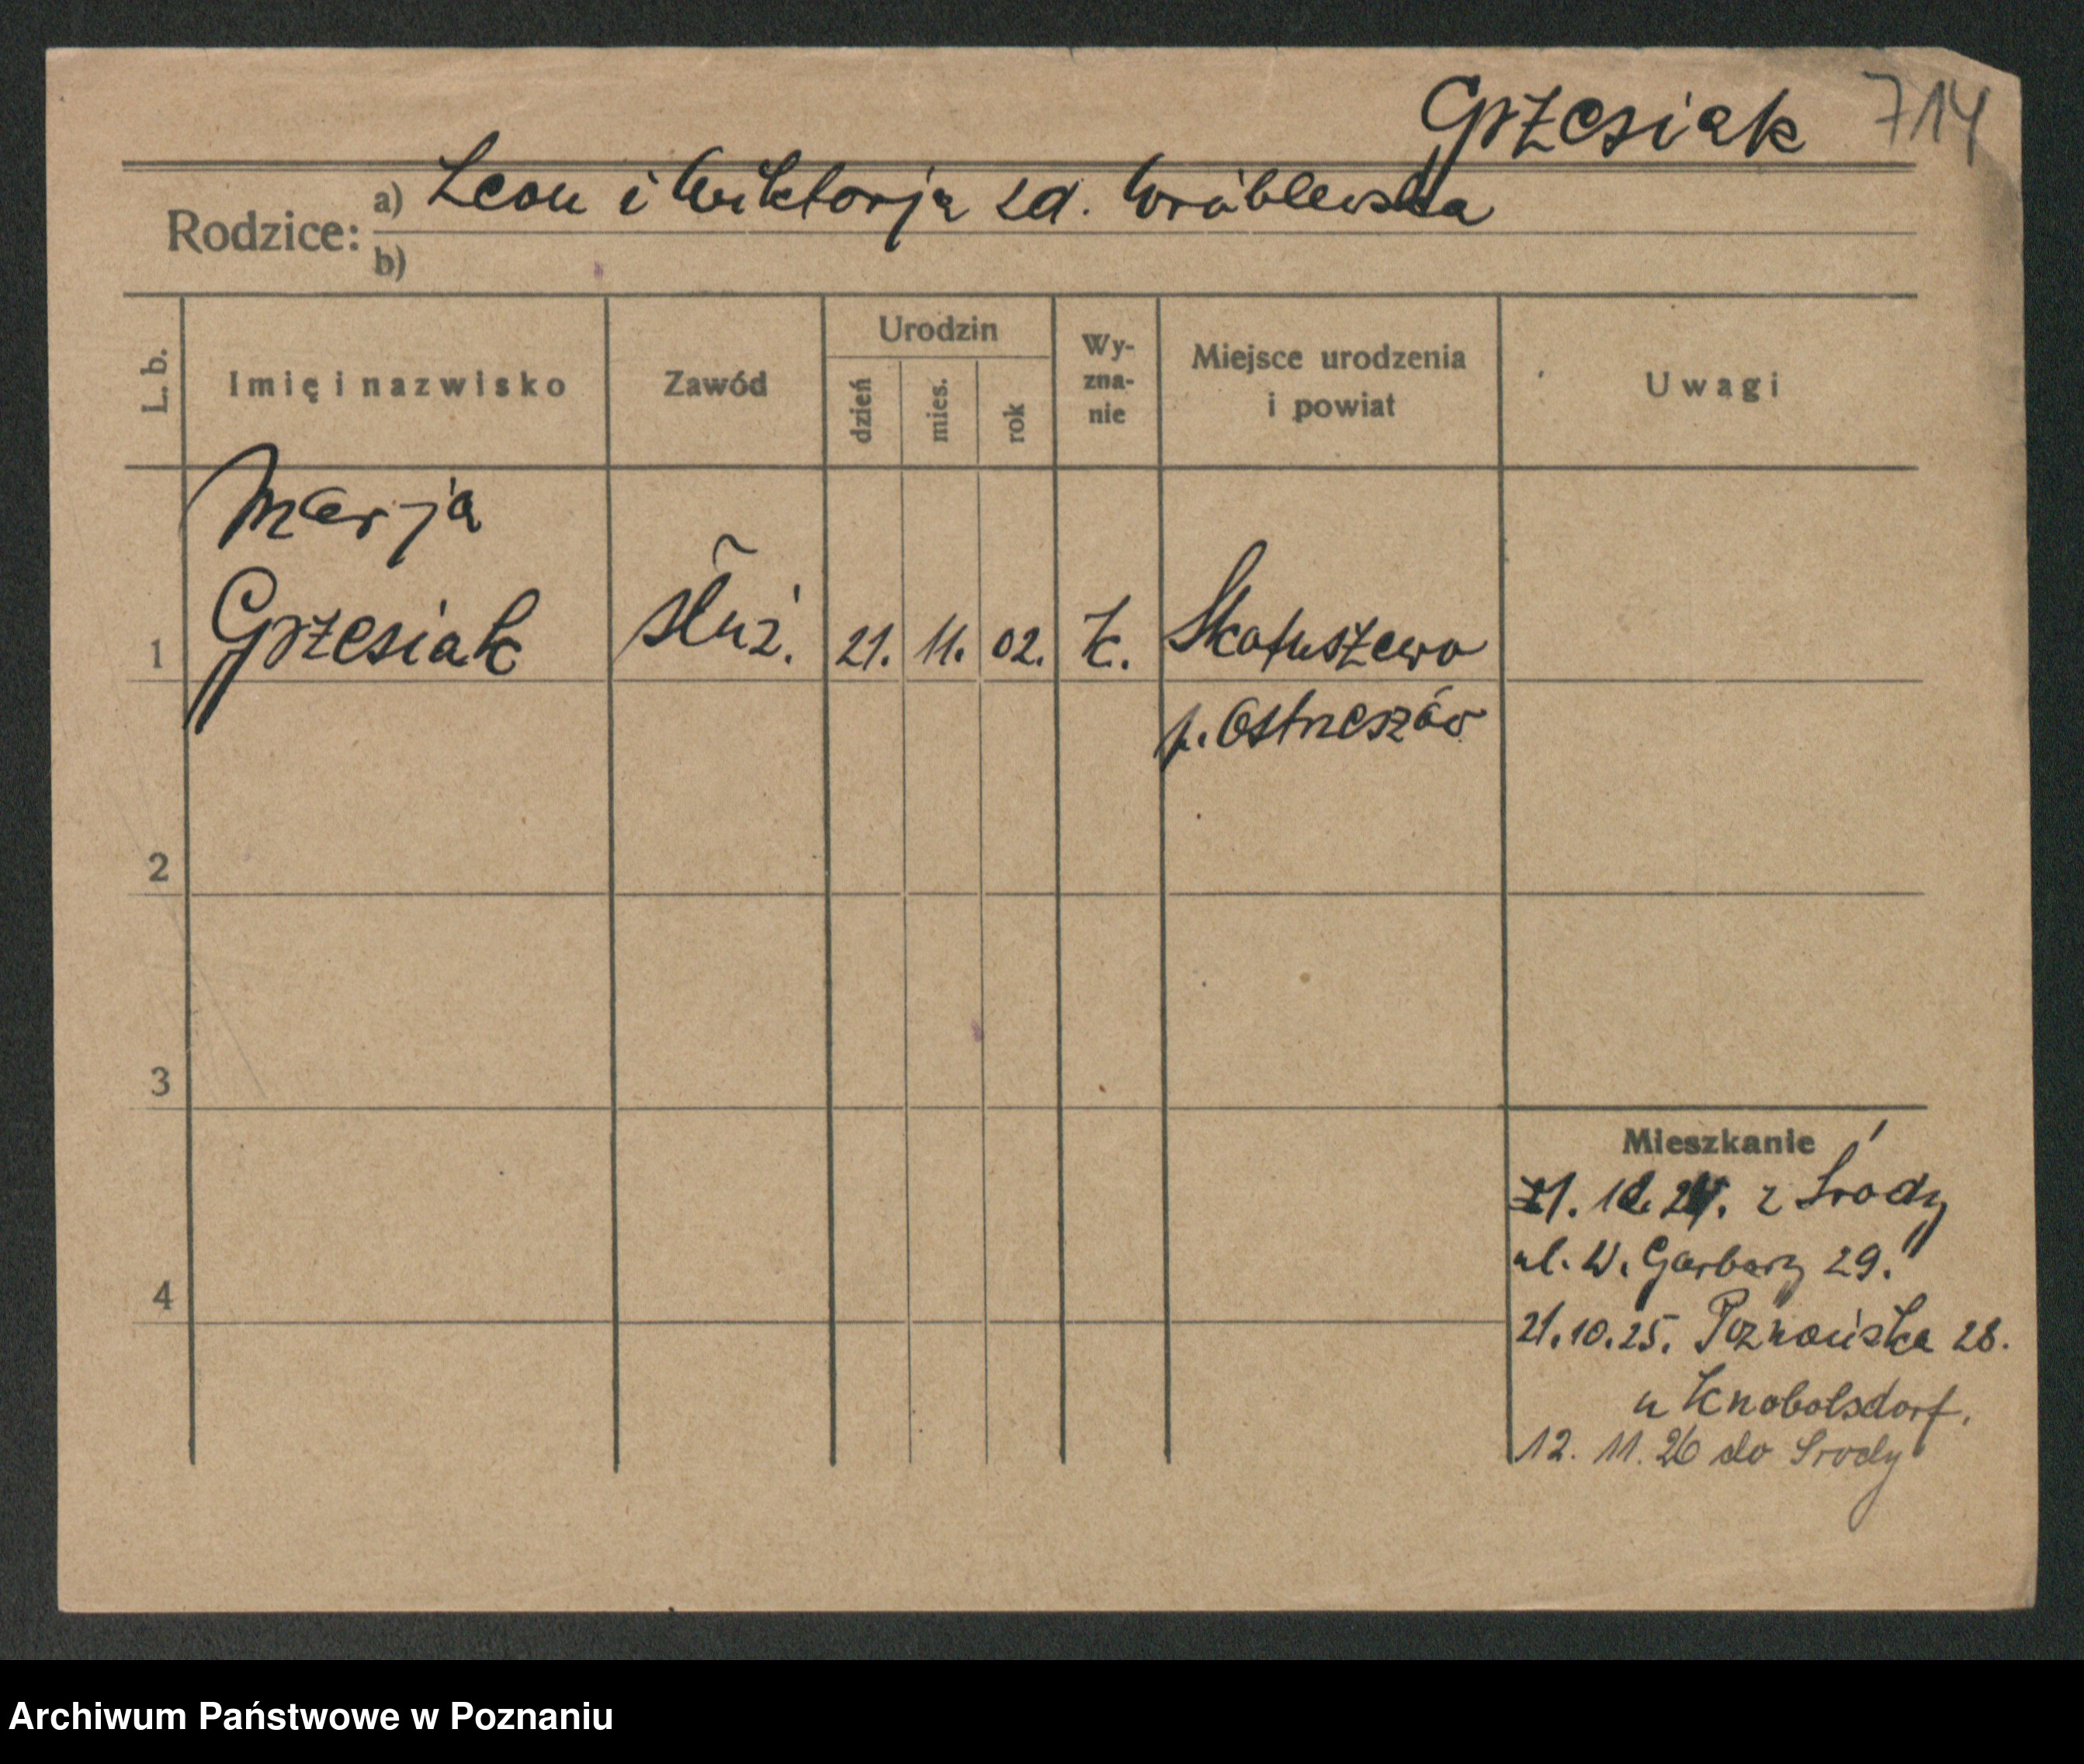 Grzesiak 714
Rodzice: a) Leon i Wiktorja zd. Wróblewska
b)
L. b. Imię i nazwisko Zawód Urodzin dzień mies. rok Wy-zna-nie Miejsce urodzenia i powiat Uwagi
Marja
1 Grzesiak służ. 21. 11. 02. k. Skatuszewo
p. Ostrzeszów
2
3
Mieszkanie
24. z Środy
ul. W. Garbary 29.
4
21.10.25. Poznańska 28.
u Knobolsdorf.
12. 11. 26 do Środy
Archiwum Państwowe w Poznaniu